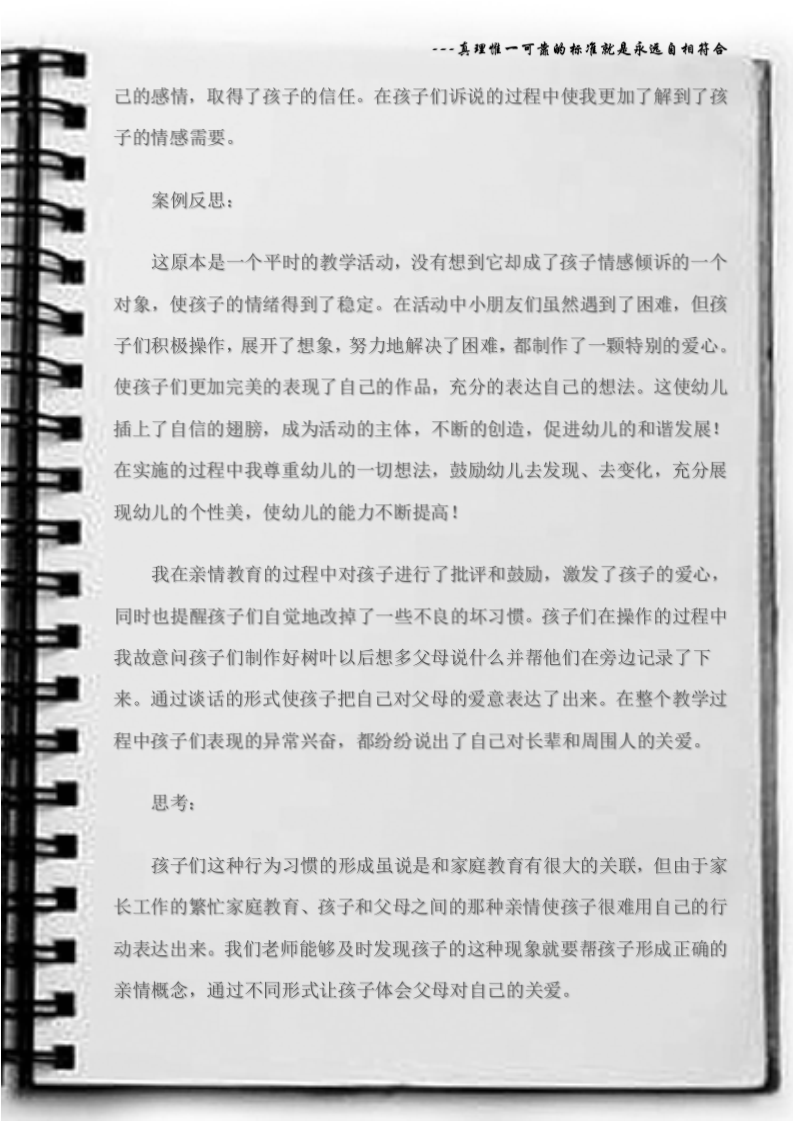 ---真理惟一可靠的标准就是永远自相符合
己的感情，取得了孩子的信任。在孩子们诉说的过程中使我更加了解到了孩
子的情感需要。
案例反思：
这原本是一个平时的教学活动，没有想到它却成了孩子情感倾诉的一个
对象，使孩子的情绪得到了稳定。在活动中小朋友们虽然遇到了困难，但孩
子们积极操作，展开了想象，努力地解决了困难，都制作了一颗特别的爱心。
使孩子们更加完美的表现了自己的作品，充分的表达自己的想法。这使幼儿
插上了自信的翅膀，成为活动的主体，不断的创造，促进幼儿的和谐发展！
在实施的过程中我尊重幼儿的一切想法，鼓励幼儿去发现、去变化，充分展
现幼儿的个性美，使幼儿的能力不断提高！
我在亲情教育的过程中对孩子进行了批评和鼓励，激发了孩子的爱心，
同时也提醒孩子们自觉地改掉了一些不良的坏习惯。孩子们在操作的过程中
我故意问孩子们制作好树叶以后想多父母说什么并帮他们在旁边记录了下
来。通过谈话的形式使孩子把自己对父母的爱意表达了出来。在整个教学过
程中孩子们表现的异常兴奋，都纷纷说出了自己对长辈和周围人的关爱。
思考：
孩子们这种行为习惯的形成虽说是和家庭教育有很大的关联，但由于家
长工作的繁忙家庭教育、孩子和父母之间的那种亲情使孩子很难用自己的行
动表达出来。我们老师能够及时发现孩子的这种现象就要帮孩子形成正确的
亲情概念，通过不同形式让孩子体会父母对自己的关爱。